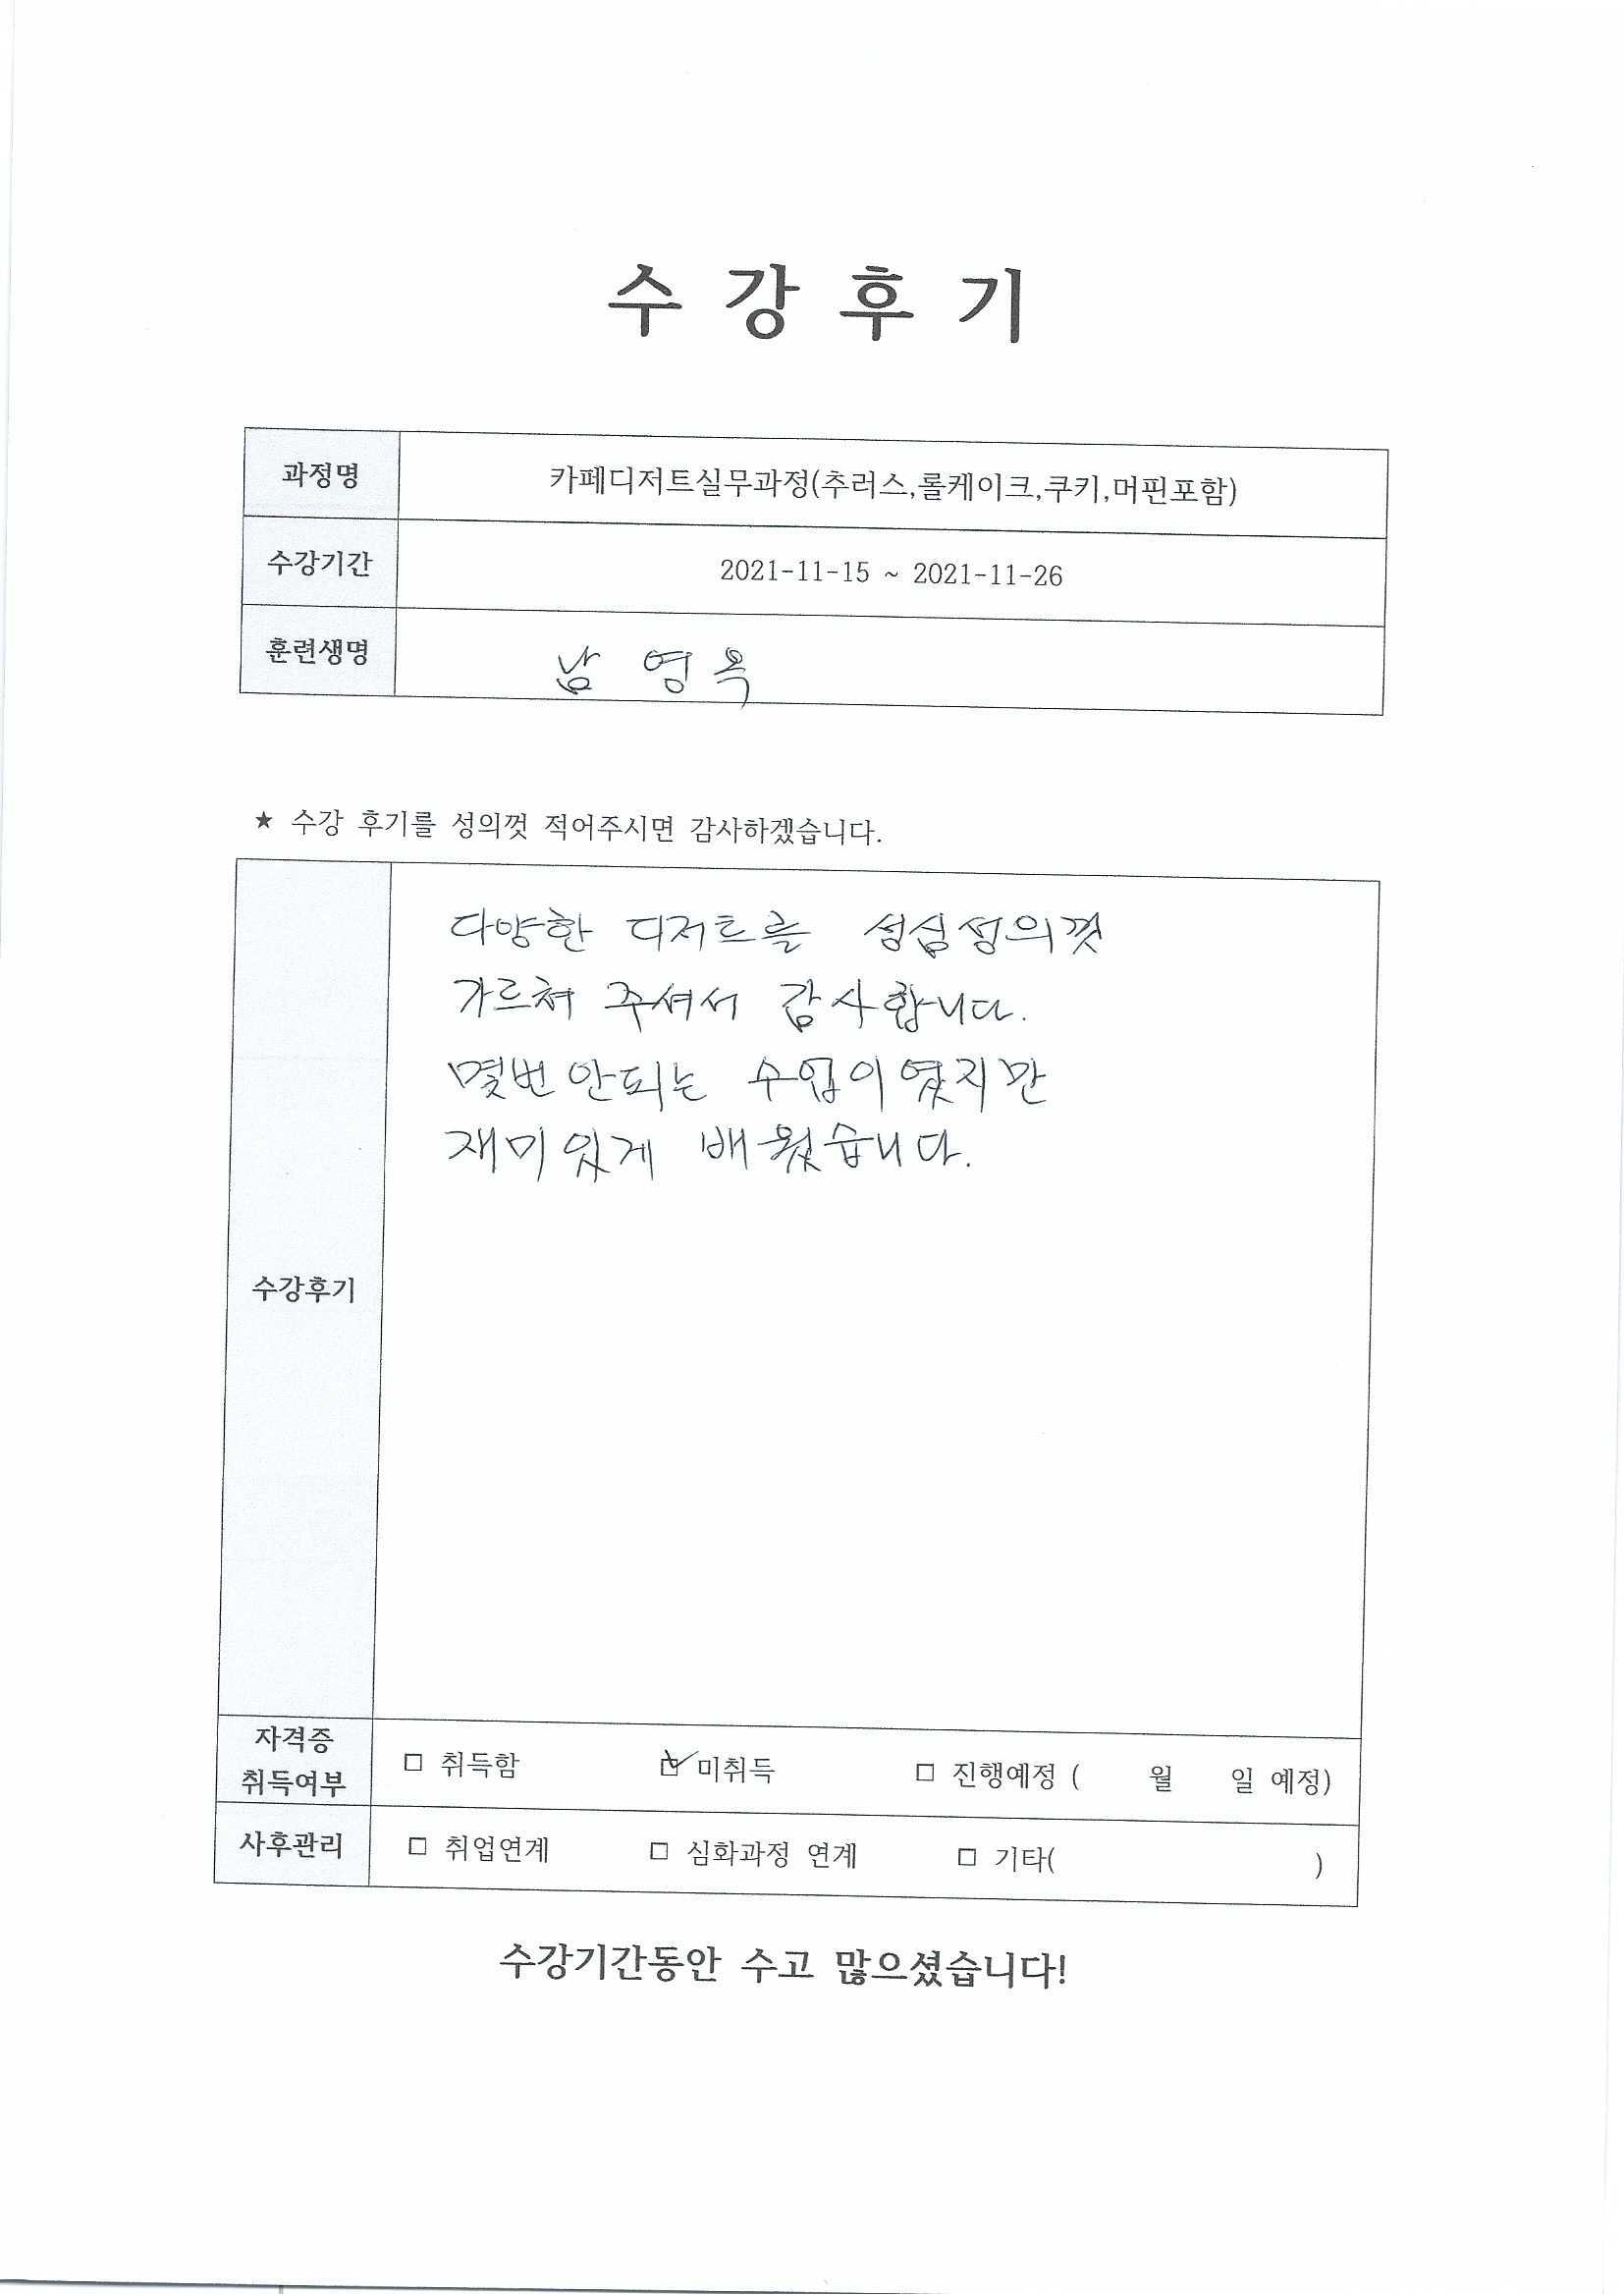 수 강 후 기
과정명 카페디저트실무과정(추러스,롤케이크,쿠키,머핀포함)
수강기간 2021-11-15 ~ 2021-11-26
훈련생명 남 영 옥
★ 수강 후기를 성의껏 적어주시면 감사하겠습니다.
다양한 디저트를 성심성의껏
가르쳐 주셔서 감사합니다.
몇번 안되는 수업이였지만
재미있게 배웠습니다.
수강후기
자격증
취득여부
□ 취득함 ☑ 미취득 □ 진행예정 ( 월 일 예정)
사후관리 □ 취업연계 □ 심화과정 연계 □ 기타( )
수강기간동안 수고 많으셨습니다!